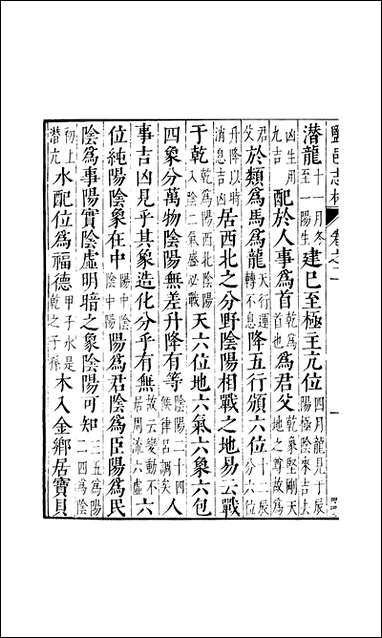 鹽邑志林 卷之二
潛龍十一月冬至一陽生建巳至極主亢位四月龍見于辰陽極陰來吉去
凶生用九吉配於人事爲首乾爲首也爲君父乾象堅剛天地之尊故爲
君父於類爲馬爲龍天行運轉不息降五行頒六位十二辰分六位
升降以時消息吉凶居西北之分野陰陽相戰之地易云戰
于乾乾爲陽西北陰陽入陰二氣盛必戰天六位地六氣六象六包
四象分萬物陰陽無差升降有等陰陽二十四候律呂調矣人
事吉凶見乎其象造化分乎有無故云變動不居周流六虛六
位純陽陰象在中陽中陰陰中陽陽爲君陰爲臣陽爲民
陰爲事陽實陰虛明暗之象陰陽可知三五爲陽二四爲陰
初上潛亢水配位爲福德甲子水是乾之子孫木入金鄉居寶貝